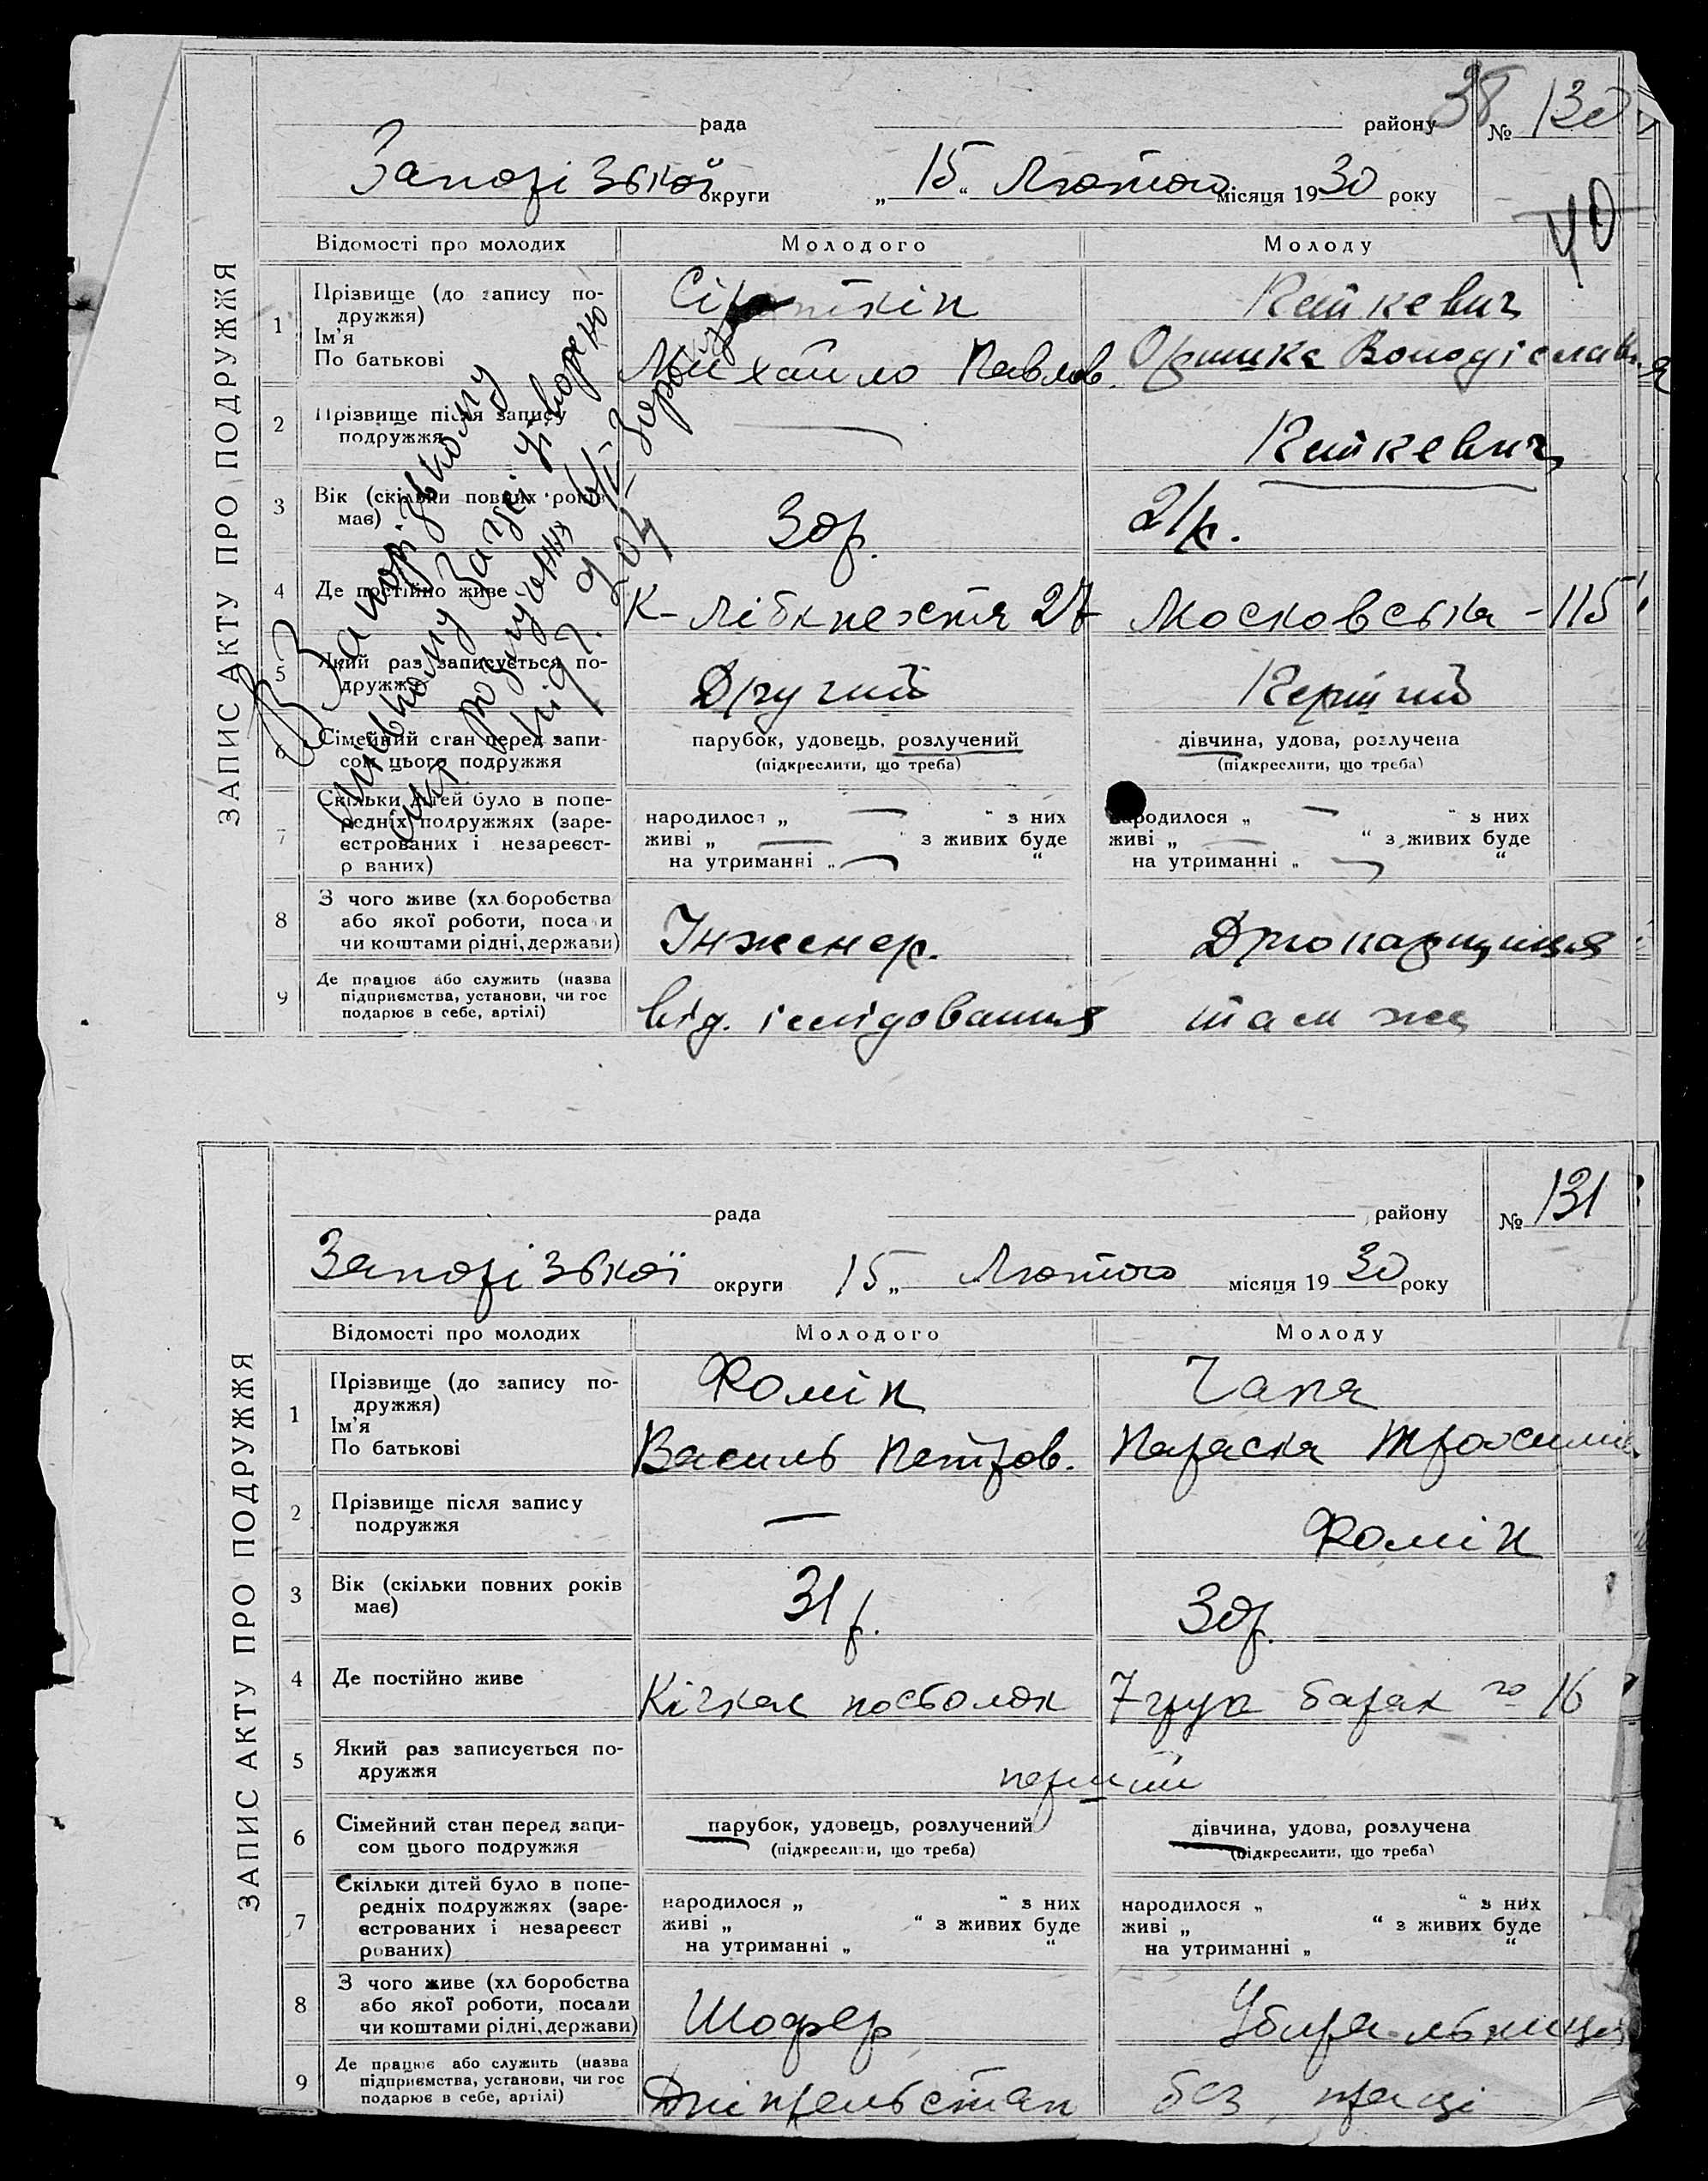 38
№ 130
рада району
Запорізької округи „ 15 “ Лютого місяця 19 30 року
40
ЗАПИС АКТУ ПРО ПОДРУЖЖЯ
Відомості про молодих Молодого Молоду
1 Прізвище (до запису подружжя)
Ім'я
По батькові
Михайло Павлов.
2 Прізвище після запису подружжя —
3 Вік (скільки повних років має) 30р. 21р.
4 Де постійно живе К-Лібкнехтя 27 Московська - 115
5 Який раз записується подружжя Другий Перший
6 Сімейний стан перед записом цього подружжя парубок, удовець, розлучений дівчина, удова, розлучена
(підкреслити, що треба) (підкреслити, що треба)
7 Скільки дітей було в попередніх подружжях (зареєстрованих і незареєстр р ваних)
народилося „ — “ з них народилося „ — “ з них
живі „ — “ з живих буде живі „ — “ з живих буде
на утриманні „ — “ на утриманні „ — “
8 З чого живе (хл боробства
або якої роботи, поса и
чи коштами рідні, держави) Інженер.
9 Де працює або служить (назва
підприємства, установи, чи гос
подарює в себе, артілі) від. ізслідовання там же
В Запорізькому
міському Загсі утворено
акт розлучення
№ 131
рада району
Запорізької округи 15 „ Лютого місяця 19 30 року
ЗАПИС АКТУ ПРО ПОДРУЖЖЯ
Відомості про молодих Молодого Молоду
1 Прізвище (до запису подружжя) Фомін Чапля
Ім'я
По батькові Василь Петров. Параска Трохимів.
2 Прізвище після запису
подружжя — Фомін
3 Вік (скільки повних років
має) 31р. 30р.
4 Де постійно живе Кічкас посьолок 7 груп барак № 16
5 Який раз записується подружжя перший
6 Сімейний стан перед записом цього подружжя парубок, удовець, розлучений дівчина, удова, розлучена
(підкреслити, що треба) (підкреслити, що треба)
7 Скільки дітей було в попередніх подружжях (зареєстрованих і незареєст рованих)
народилося „ “ з них народилося „ “ з них
живі „ “ з живих буде живі „ “ з живих буде
на утриманні „ “ на утриманні „ “
8 З чого живе (хл боробства
або якої роботи, посади
чи коштами рідні, держави) Шофер Убиральниця
9 Де працює або служить (назва
підприємства, установи, чи гос
подарює в себе, артілі) Дніпрельстан без праці